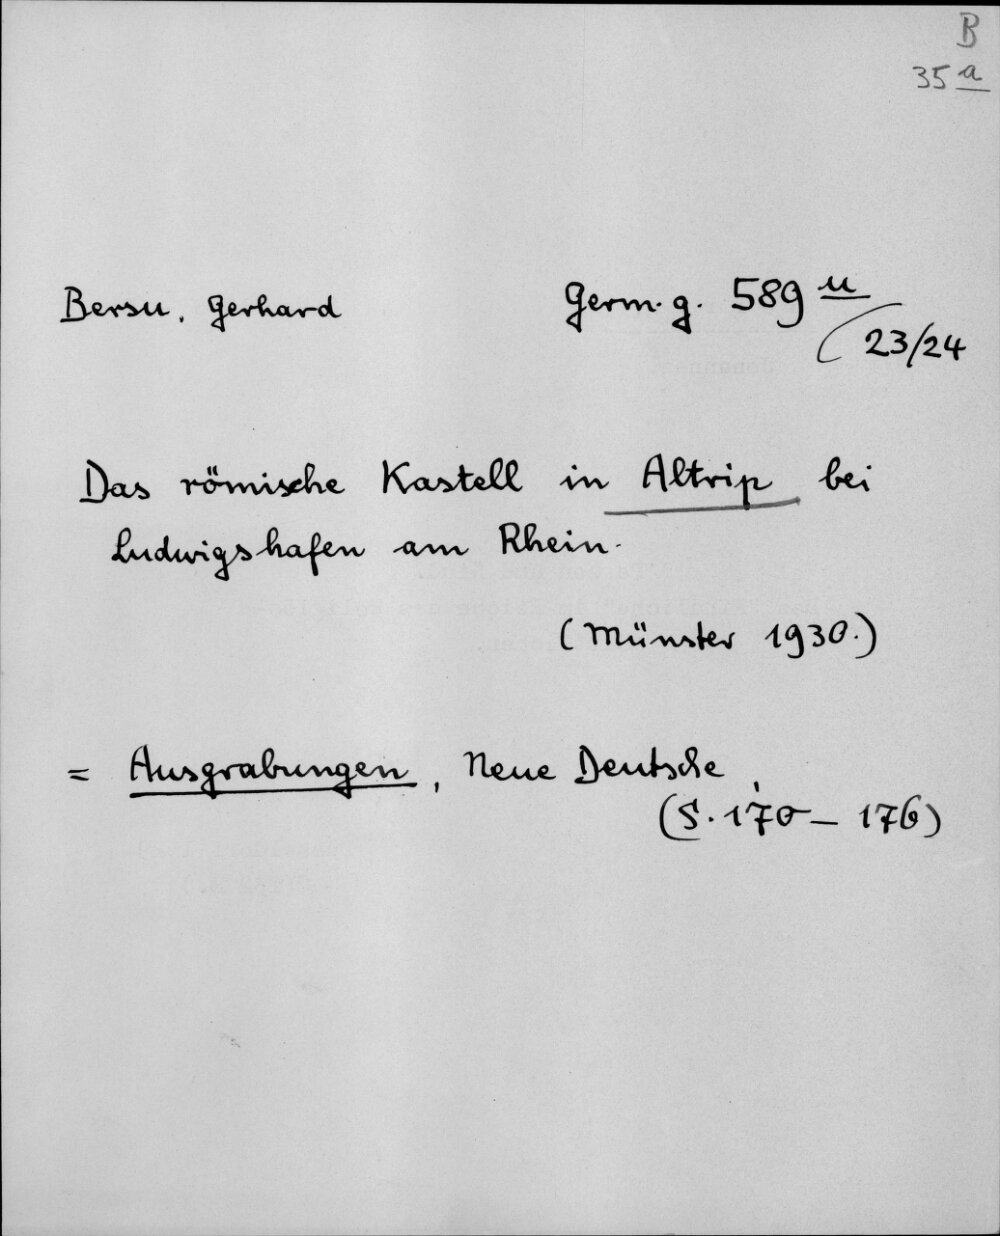 B
35 a
Bersu, Gerhard
Germ. g. 589 u
23/24
Das römische Kastell in Altrip bei
Ludwigshafen am Rhein.
(Münster 1930.)
= Ausgrabungen, Neue Deutsche,
(S. 170 – 176)